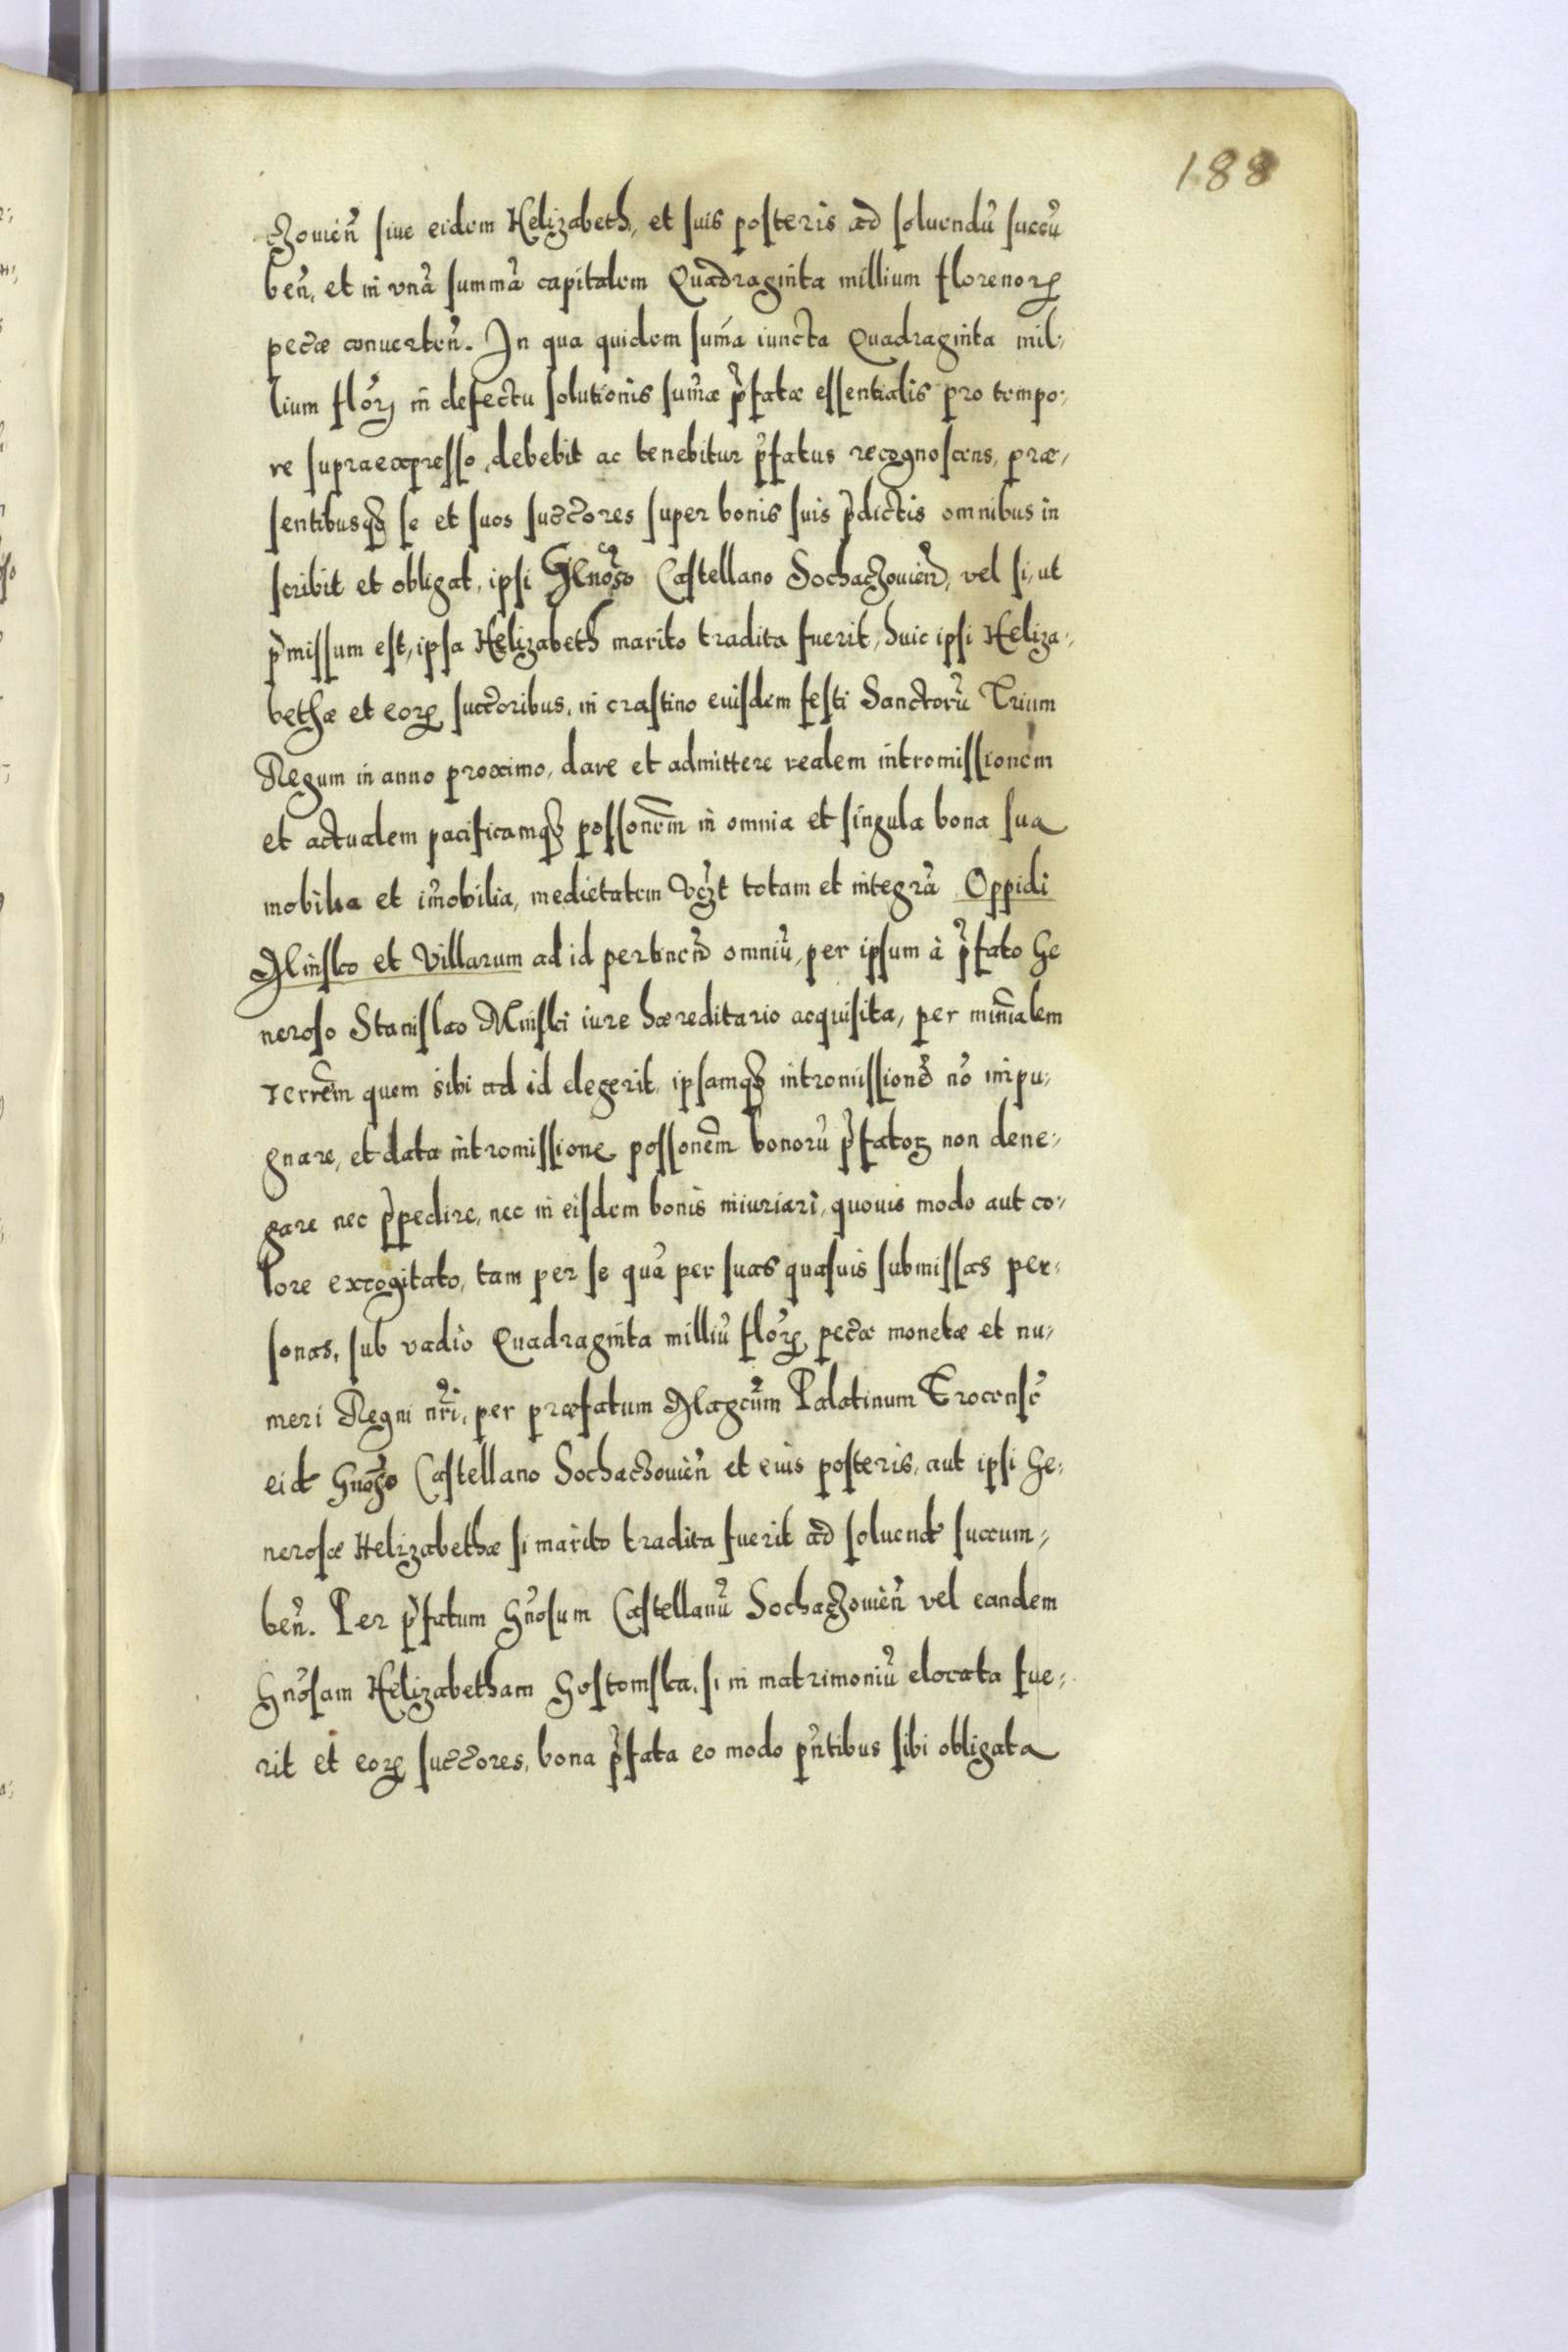 188
czouien̄ siue eidem Helizabeth, et suis posteris ad soluendū succū
ben̄, et in vnā summā capitalem Quadraginta millium florenorꝝ
pec̄æ conuerten̄. In qua quidem sum̄a iuncta Quadraginta mil,
lium flōꝝ in defectu solutionis sum̄æ p̄fatæ essentialis pro tempo,
re supraexpresso, debebit ac tenebitur p̄fatus recognoscens, præ,
sentibusqȝ se et suos succ̄ores super bonis suis p̄dictis omnibus in
scribit et obligat, ipsi Gn̄oso Castellano Sochaczouien̄, vel si, ut
p̄missum est, ipsa Helizabeth marito tradita fuerit, huic ipsi Heliza,
bethæ et eorꝝ succ̄oribus, in crastino euisdem festi Sanctorū Trium
Regum in anno proximo, dare et admittere realem intromissionem
et actualem pacificamqȝ posson̄em in omnia et singula bona sua
mobilia et im̄obilia, medietatem vcz̄t totam et integrā Oppidi
Minsko et Villarum ad id pertinen̄ omniū, per ipsum à p̄fato Ge
neroso Stanislao Minski iure hæreditario acquisita, per min̄ialem
Terrem̄ quem sibi ad id elegerit, ipsamqȝ intromissionē nō impu,
gnare, et data intromissione posson̄em bonorū p̄fatoꝝ non dene,
gare nec p̄pedire, nec in eisdem bonis iniuriari, quouis modo aut co,
lore excogitato, tam per se quā per suas quasuis submissas per,
sonas, sub vadio Quadraginta milliū flōrꝝ pec̄æ monetæ et nu,
meri Regni nr̄i, per præfatum Magcūm Palatinum Trocens̄
eid Gn̄oso Castellano Sochaczouien̄ et euis posteris, aut ipsi Ge,
nerosæ Helizabethæ si marito tradita fuerit ad soluend succum,
ben̄. Per p̄fatum Gn̄osum Castellanū Sochaczouien̄ vel eandem
Gn̄osam Helizabetham Gostomska, si in matrimoniū elocata fue,
rit et eorꝝ succ̄ores, bona p̄fata eo modo pn̄tibus sibi obligata